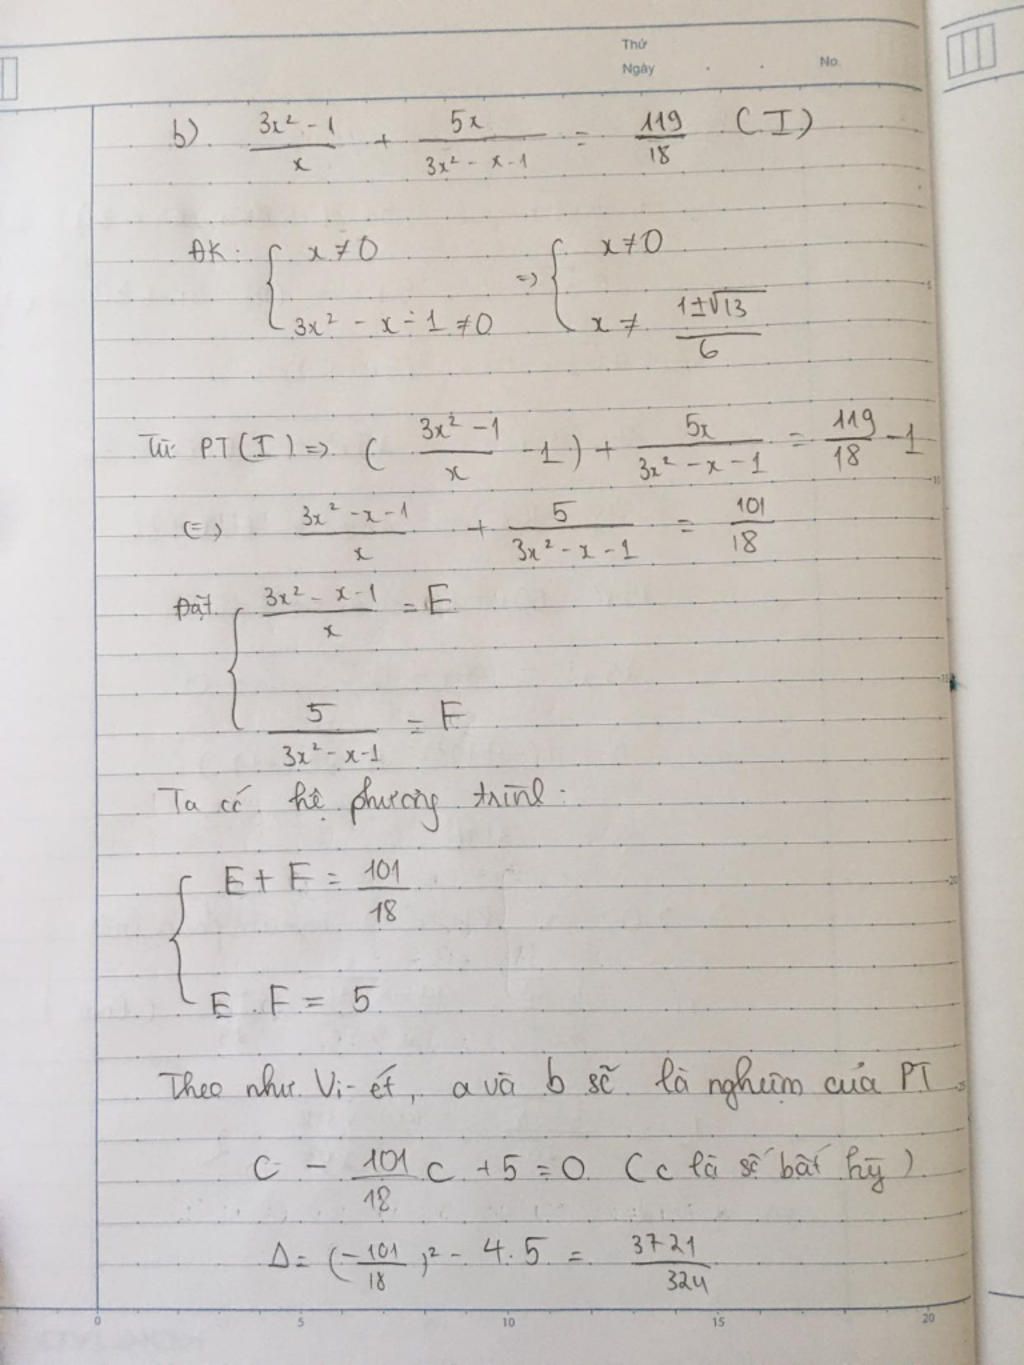 Thứ
Ngày . . No.
b) (3x² - 1)/x + 5x/(3x² - x - 1) = 119/18 (I)
ĐK: { x ≠ 0 => { x ≠ 0
3x² - x - 1 ≠ 0 x ≠ (1±√13)/6
Từ PT(I) => ( (3x² - 1)/x - 1 ) + 5x/(3x² - x - 1) = 119/18 - 1
(=) (3x² - x - 1)/x + 5/(3x² - x - 1) = 101/18
Đặt { (3x² - x - 1)/x = E
5/(3x² - x - 1) = F
Ta có hệ phương trình:
{ E + F = 101/18
E . F = 5
Theo như Vi-ét, a và b sẽ là nghiệm của PT
C - 101/18 C + 5 = 0 (c là số bất kỳ)
Δ = (-101/18)² - 4.5 = 3721/324
0 5 10 15 20